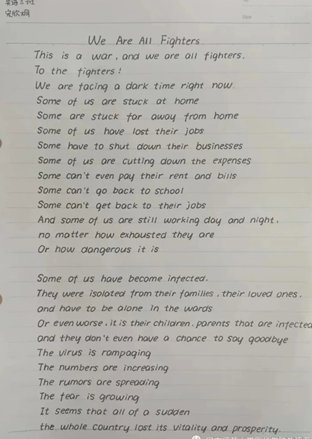 We Are All Fighters
This is a war, and we are all fighters.
To the fighters!
We are facing a dark time right now
Some of us are stuck at home
Some are stuck far away from home
Some of us have lost their jobs
Some have to shut down their businesses
Some of us are cutting down the expenses
Some can't even pay their rent and bills
Some can't go back to school
Some can't get back to their jobs
And some of us are still working day and night,
no matter how exhausted they are
Or how dangerous it is
Some of us have become infected.
They were isolated from their families, their loved ones,
and have to be alone in the wards
Or even worse, it is their children, parents that are infected
and they don't even have a chance to say goodbye
The virus is rampaging
The numbers are increasing
The rumors are spreading
The fear is growing
It seems that all of a sudden
the whole country lost its vitality and prosperity.